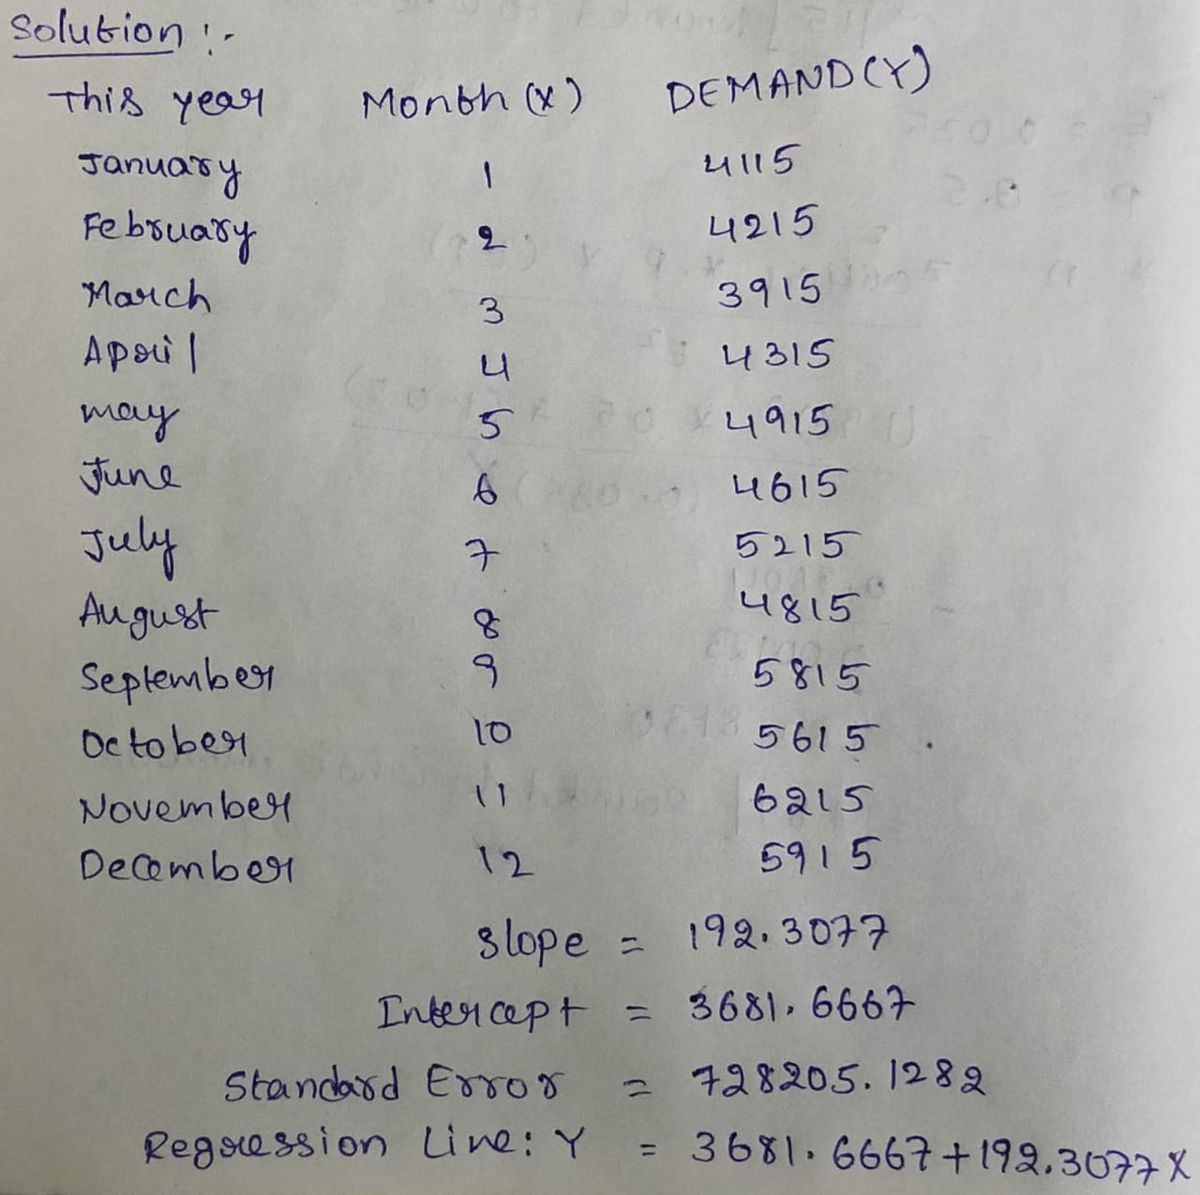 Solution :-
This year Month (X) DEMAND(Y)
January 1 4115
February 2 4215
March 3 3915
April 4 4315
may 5 4915
June 6 4615
July 7 5215
August 8 4815
September 9 5815
October 10 5615
November 11 6215
December 12 5915
Slope = 192.3077
Intercept = 3681.6667
Standard Error = 728205.1282
Regression Line: Y = 3681.6667+192.3077X